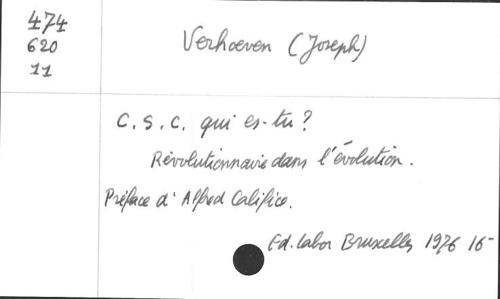 474
620
11
Verhoeven (Joseph)
C.S.C. qui es-tu?
Révolutionnaire dans l'évolution.
Préface d'Alfred Califice.
Ed. Labor Bruxelles 1976 16-